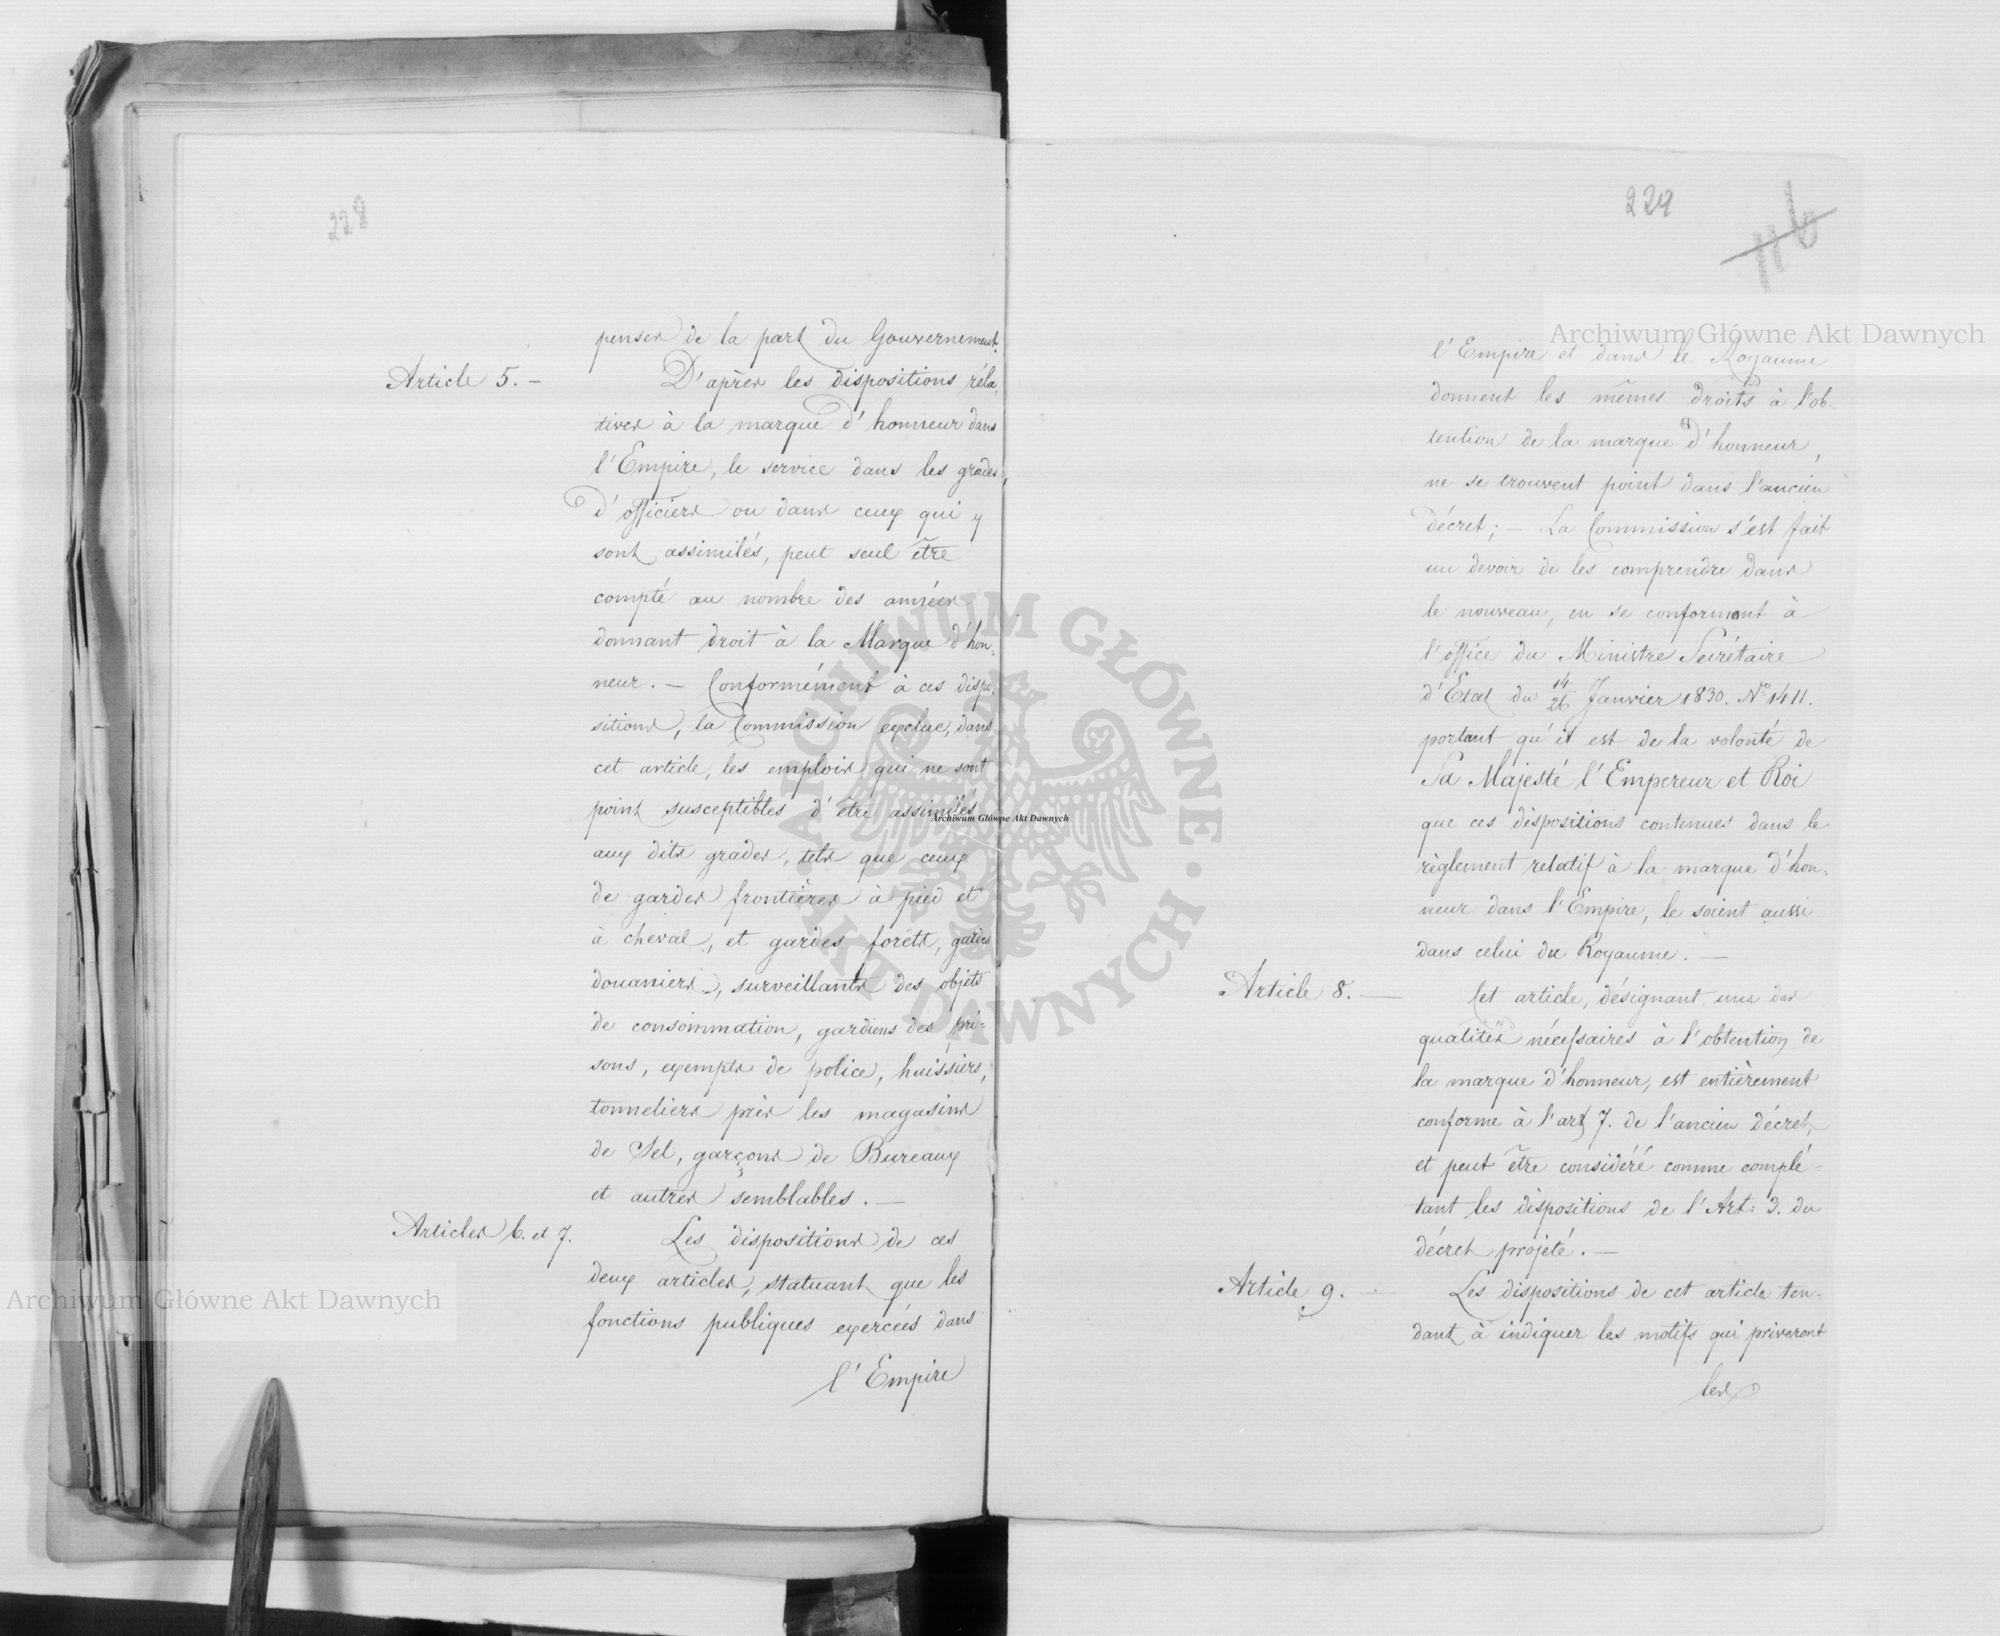 228
penser de la part du Gouvernement.
Article 5. –
D'après les dispositions réla-
tives à la marque d'honneur dans
l'Empire, le service dans les grades
d'officiers ou dans ceux qui y
sont assimilés, peut seul être
compté au nombre des années
donnant droit à la Marque d'hon-
neur. – Conformément à ces dispo-
sitions, la Commission exclue, dans
cet article, les emplois qui ne sont
point susceptibles d'être assimilés
aux dits grades, tels que ceux
de gardes frontières à pied et
à cheval, et gardes forêts, gardes
douaniers, surveillants des objets
de consommation, gardiens des pri-
sons, exempts de police, huissiers,
tonneliers près les magasins
de Sel, garçons de Bureaux
et autres semblables. –
Articles 6. et 7.
Les dispositions de ces
deux articles, statuant que les
fonctions publiques exercées dans
l'Empire
229
116
l'Empire et dans le Royaume
donnent les mêmes droits à l'ob-
tention de la marque d'honneur,
ne se trouvent point dans l'ancien
décret; – La Commission s'est fait
un devoir de les comprendre dans
le nouveau, en se conformant à
l'office du Ministre Secrétaire
d'Etat du 14/26 Janvier 1830. No 1411.
portant qu'il est de la volonté de
Sa Majesté l'Empereur et Roi
que ces dispositions contenues dans le
règlement relatif à la marque d'hon-
neur dans l'Empire, le soient aussi
dans celui du Royaume. –
Article 8. –
Cet article, désignant une des
qualités nécessaires à l'obtention de
la marque d'honneur, est entièrement
conforme à l'art 7. de l'ancien décret,
et peut être considéré comme complé-
tant les dispositions de l'Art: 3. du
décret projeté. –
Article 9. –
Les dispositions de cet article ten-
dant à indiquer les motifs qui priveront
les
Archiwum Główne Akt Dawnych
Archiwum Główne Akt Dawnych
Archiwum Główne Akt Dawnych
ARCHIWUM GŁÓWNE · AKT DAWNYCH ·